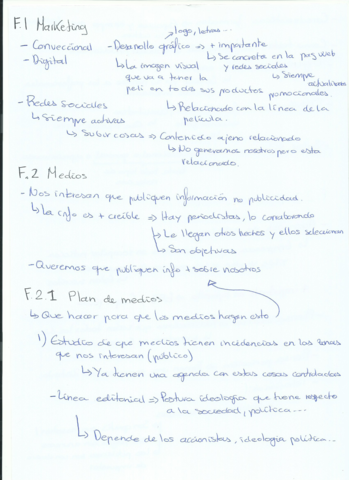 F.1 Marketing
logo, letras...
- Convencional - Desarrollo gráfico ⇒ + importante
- Digital
↳ La imagen visual que va a tener la peli en todos sus productos promocionales.
↳ Se concreta en la pag web y redes sociales
↳ Siempre actualizarlas
- Redes Sociales
↳ Relacionado con la línea de la película.
↳ Siempre activas
↳ Subir cosas ⇒ Contenido ajeno relacionado
↳ No generamos nosotros pero esta relacionado.
F.2 Medios
- Nos interesan que publiquen información no publicidad.
↳ La info es + creíble ⇒ Hay periodistas, lo
↳ Le llegan otros hechos y ellos seleccionan
↳ Son objetivas
- Queremos que publiquen info + sobre nosotros
F.2.1 Plan de medios
↳ Que hacer para que los medios hagan esto
1) Estudio de que medios tienen incidencias en las zonas
que nos interesan (público)
↳ Ya tienen una agenda con estas cosas contratadas
- Línea editorial ⇒ Postura ideologica que tiene respecto
a la sociedad, política...
↳ Depende de los accionistas, ideología política...